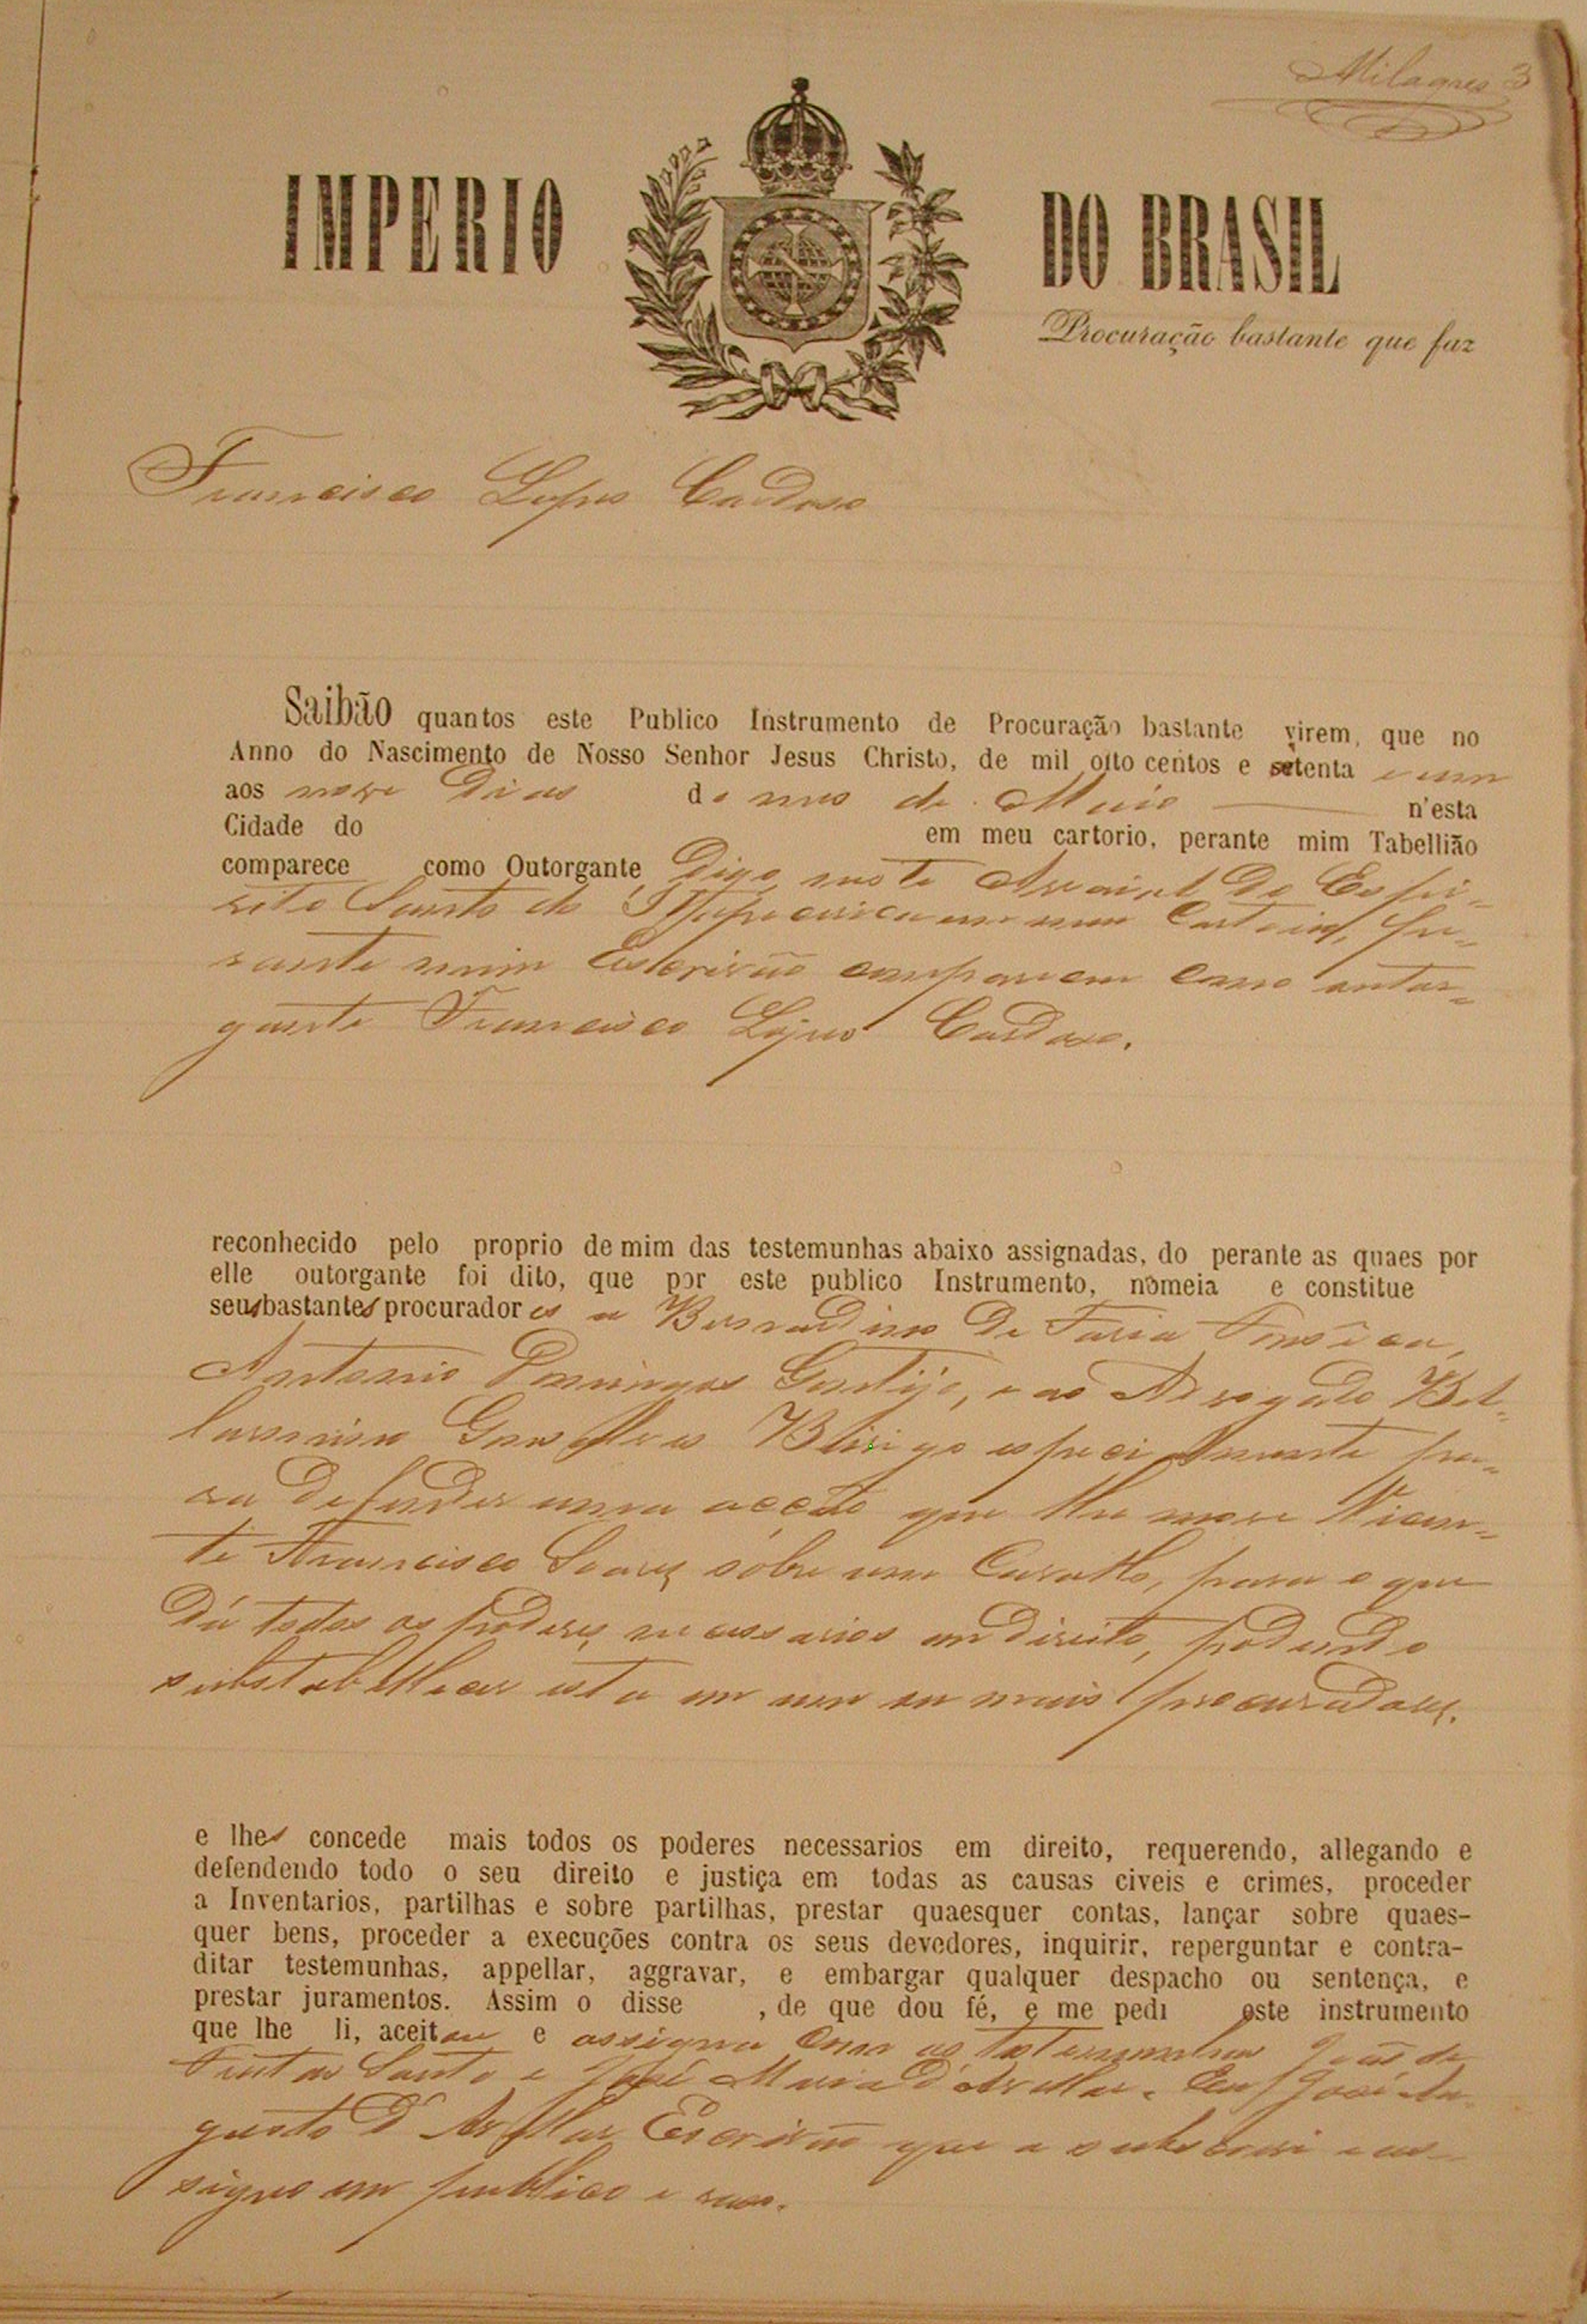 Milagres 3
IMPERIO DO BRASIL
Procuração bastante que faz
Francisco Lopes Cardoso
Saibão quantos este Publico Instrumento de Procuração bastante virem, que no
Anno do Nascimento de Nosso Senhor Jesus Christo, de mil oito centos e setenta e um
aos nove dias do mes de Maio n'esta
Cidade do em meu cartorio, perante mim Tabellião
comparece como Outorgante digo neste Arraial do Espi-
rito Santo de Itapecerica em meu Cartorio, pe-
rante mim Escrivão compareceu como outor-
gante Francisco Lopes Cardoso.
reconhecido pelo proprio de mim das testemunhas abaixo assignadas, do perante as quaes por
elle outorgante foi dito, que por este publico Instrumento, nomeia e constitue
seus bastantes procuradores a Bernardino de Faria Fonseca,
Antonio Domingos , e ao Advogado Bel-
larmino Gonçalves especialmente pa-
ra defender uma acção que lhe move Vicen-
te Francisco Soares sobre um Cavallo, para o que
dá todos os poderes necessarios em direito, podendo
substabellecer esta em um ou mais procuradores.
e lhes concede mais todos os poderes necessarios em direito, requerendo, allegando e
defendendo todo o seu direito e justiça em todas as causas civeis e crimes, proceder
a Inventarios, partilhas e sobre partilhas, prestar quaesquer contas, lançar sobre quaes-
quer bens, proceder a execuções contra os seus devedores, inquirir, reperguntar e contra-
ditar testemunhas, appellar, aggravar, e embargar qualquer despacho ou sentença, e
prestar juramentos. Assim o disse , de que dou fé, e me pedi este instrumento
que lhe li, aceitou e assigna com as testemunhas João de
Santo e José Maria d'Avellar. Eu José Au-
gusto d'Avellar Escrivão que a subscrevi e as-
signo em publico e raso.